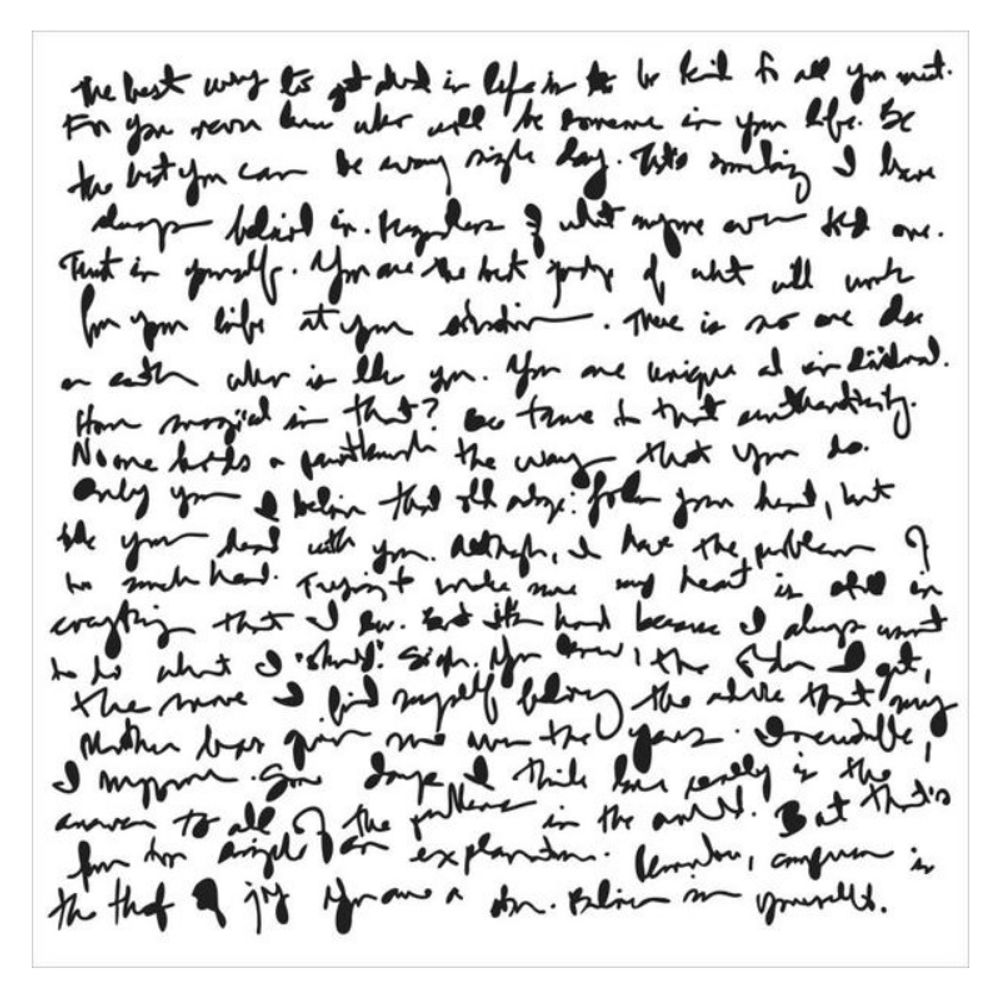 The best way to get ahead in life is to be kind to all you meet.
For you never know who will be someone in your life. Be
the best you can be every single day. That's something I have
always believed in. Regardless of what anyone ever told me.
Trust in yourself. You are the best judge of what will work
for your life at your situation. There is no one else
on earth who is like you. You are unique and individual.
How magical is that? Be true to that authenticity.
No one holds a paintbrush the way that you do.
Only you. I believe that old adage: follow your heart, but
take your head with you. Although, I have the problem of
too much head. Trying to make sure my heart is also in
everything that I do. But it's hard because I always want
to do what I "should". Sigh. You know, the older I get,
the more I find myself following the advice that my
Mother has given me over the years. Inevitable,
I suppose. Some days I think love really is the
answer to all of the problems in the world. But that's
far too simple of an explanation. Remember, comparison is
the thief of joy. You are a star. Believe in yourself.